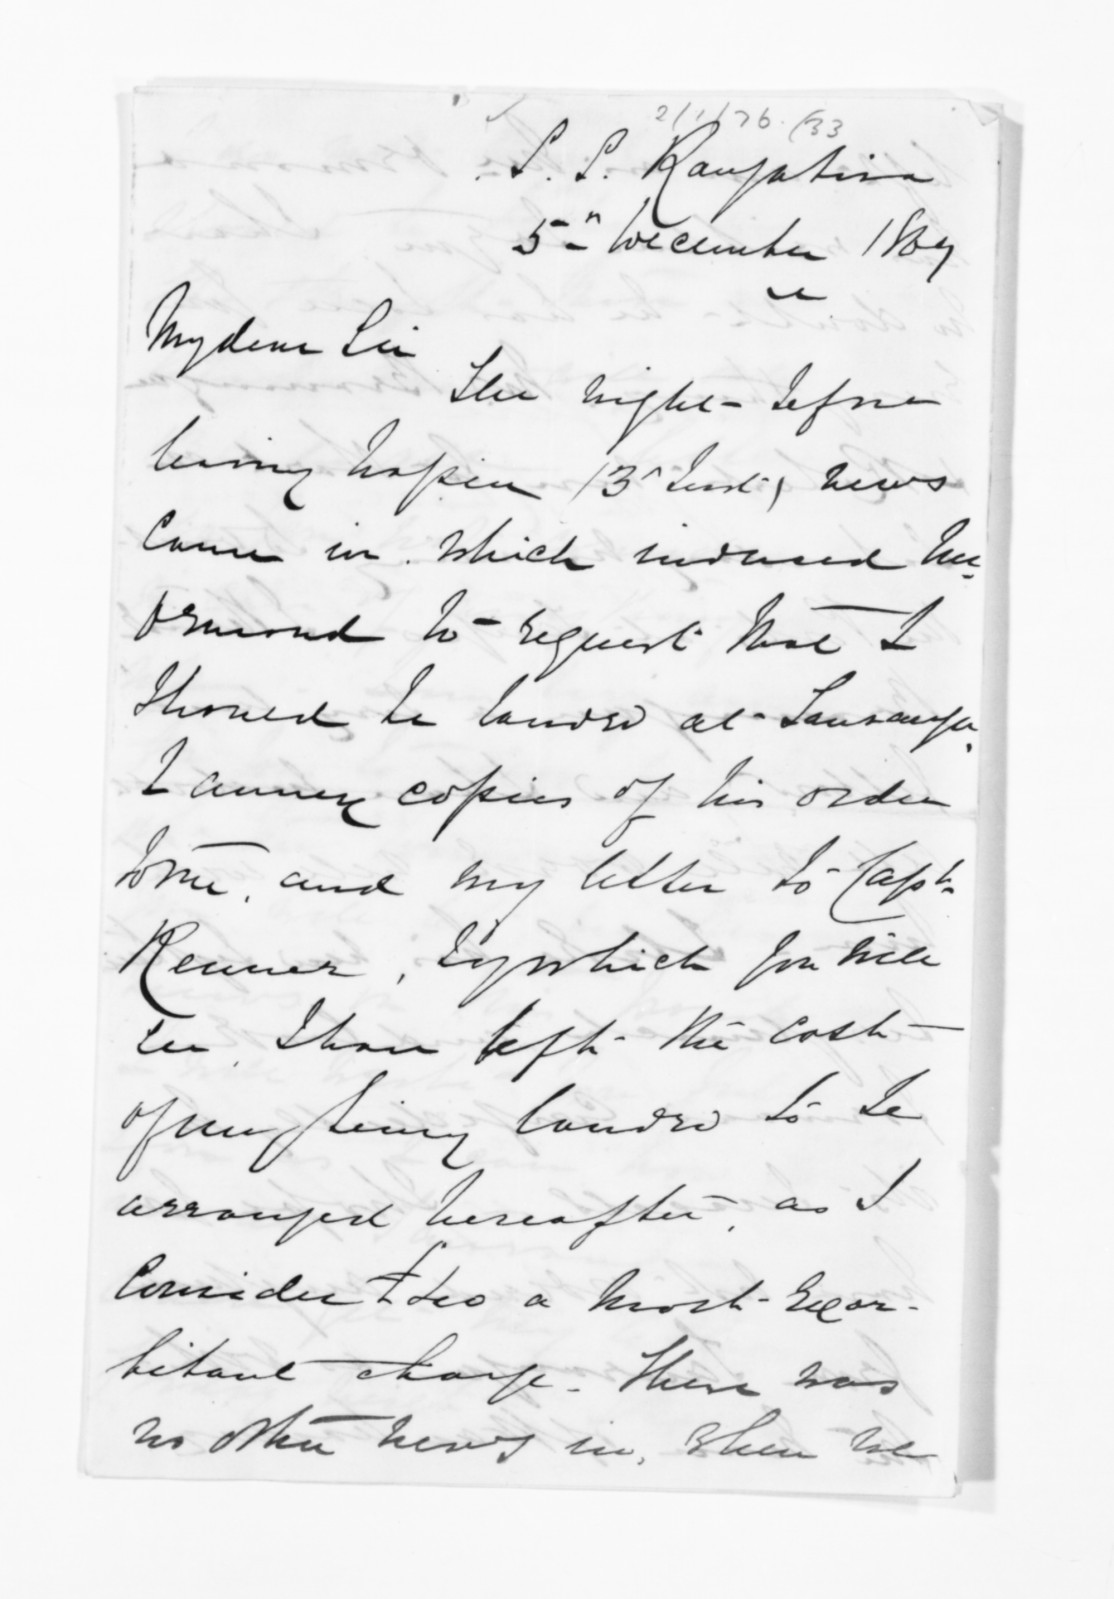 2/1/76. /33
S. S. Rangatira
5th December 1867
My dear Sir
The night before
leaving Napier (3rd Inst), news
came in which induced Mr
Ormond to request that I
should be landed at Tauranga.
I annex copies of his order
to me, and my letter to Capt
Kennedy, by which you will
see, I have left the cost
of my being landed to be
arranged hereafter, as I
consider £20 a most exor-
bitant charge. There was
no other news in, when we